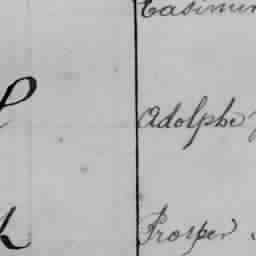 Casimir
Adolphe
Prosper